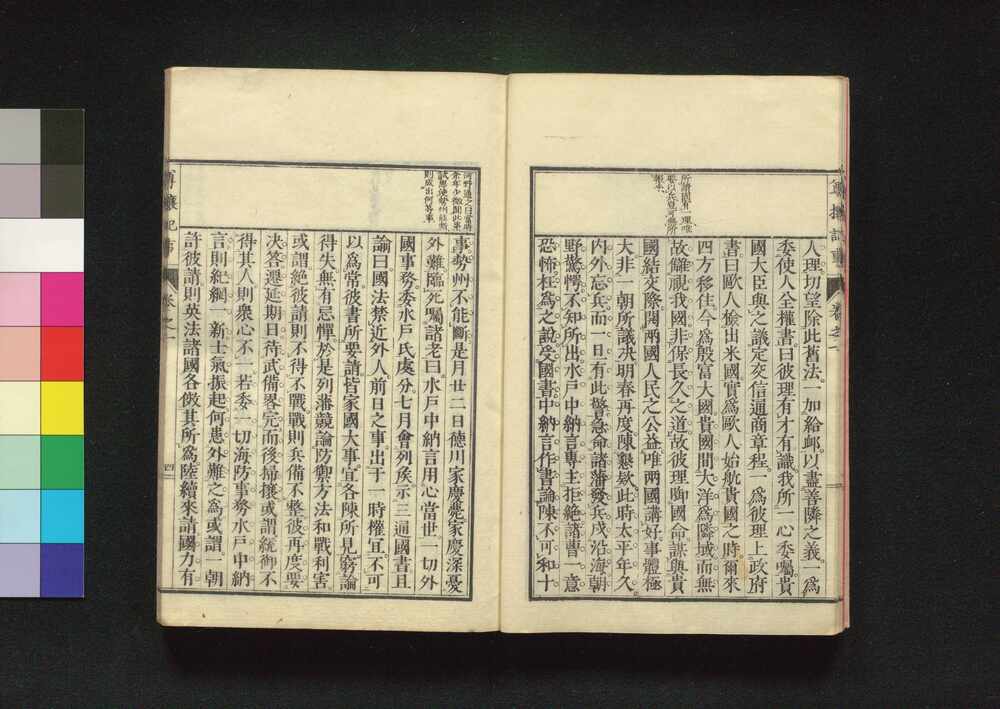 尊攘記事
卷之一
所論固有一理唯
人理切望除此舊法一加給邺以盡善隣之義一爲
委使人全權書曰彼理有才有識我所一心委囑貴
國大臣與之議定交信通商章程一爲彼理上政府
書曰歐人儉出米國實爲歐人始航貴國之時爾來
四方移住今爲殷富大國貴國間大洋爲隣域而無
故讎視我國非保長久之道故彼理啣國命謀與貴
國結交際闊兩國人民之公益唯兩國講好事體極
大非一朝所議决明春再度陳懇款此時太平年久
内外忘兵而一旦有此警急命諸藩發兵戍沿海朝
野驚愕不知所出水戸中納言專主拒絶諸曹一意
恐怖枉爲之說受國書中納言作書論陳不可和十
河野通之曰當時
余年少微聞此事
試思使勢州能斷
則成出何等事
事勢州不能斷是月廿二日德川家慶薨家慶深憂
外難臨死囑諸老曰水戸中納言用心當世一切外
國事務委水戸氏處分七月會列侯示三通國書且
諭曰國法禁近外人前日之事出于一時權宜不可
以爲常彼書所要請皆家國大事宜各陳所見竊論
得失無有忌憚於是列藩競論防禦方法和戰利害
或謂絶彼請則不得不戰戰則兵備不整彼再度要
决答遷延期日待武備畧完而後掃攘或謂統御不
得其人則衆心不一若委一切海防事務水戸中納
言則紀綱一新士氣振起何患外難之爲或謂一朝
許彼請則英法諸國各傚其所爲陸續來請國力有
尊攘紀事
卷之一
四